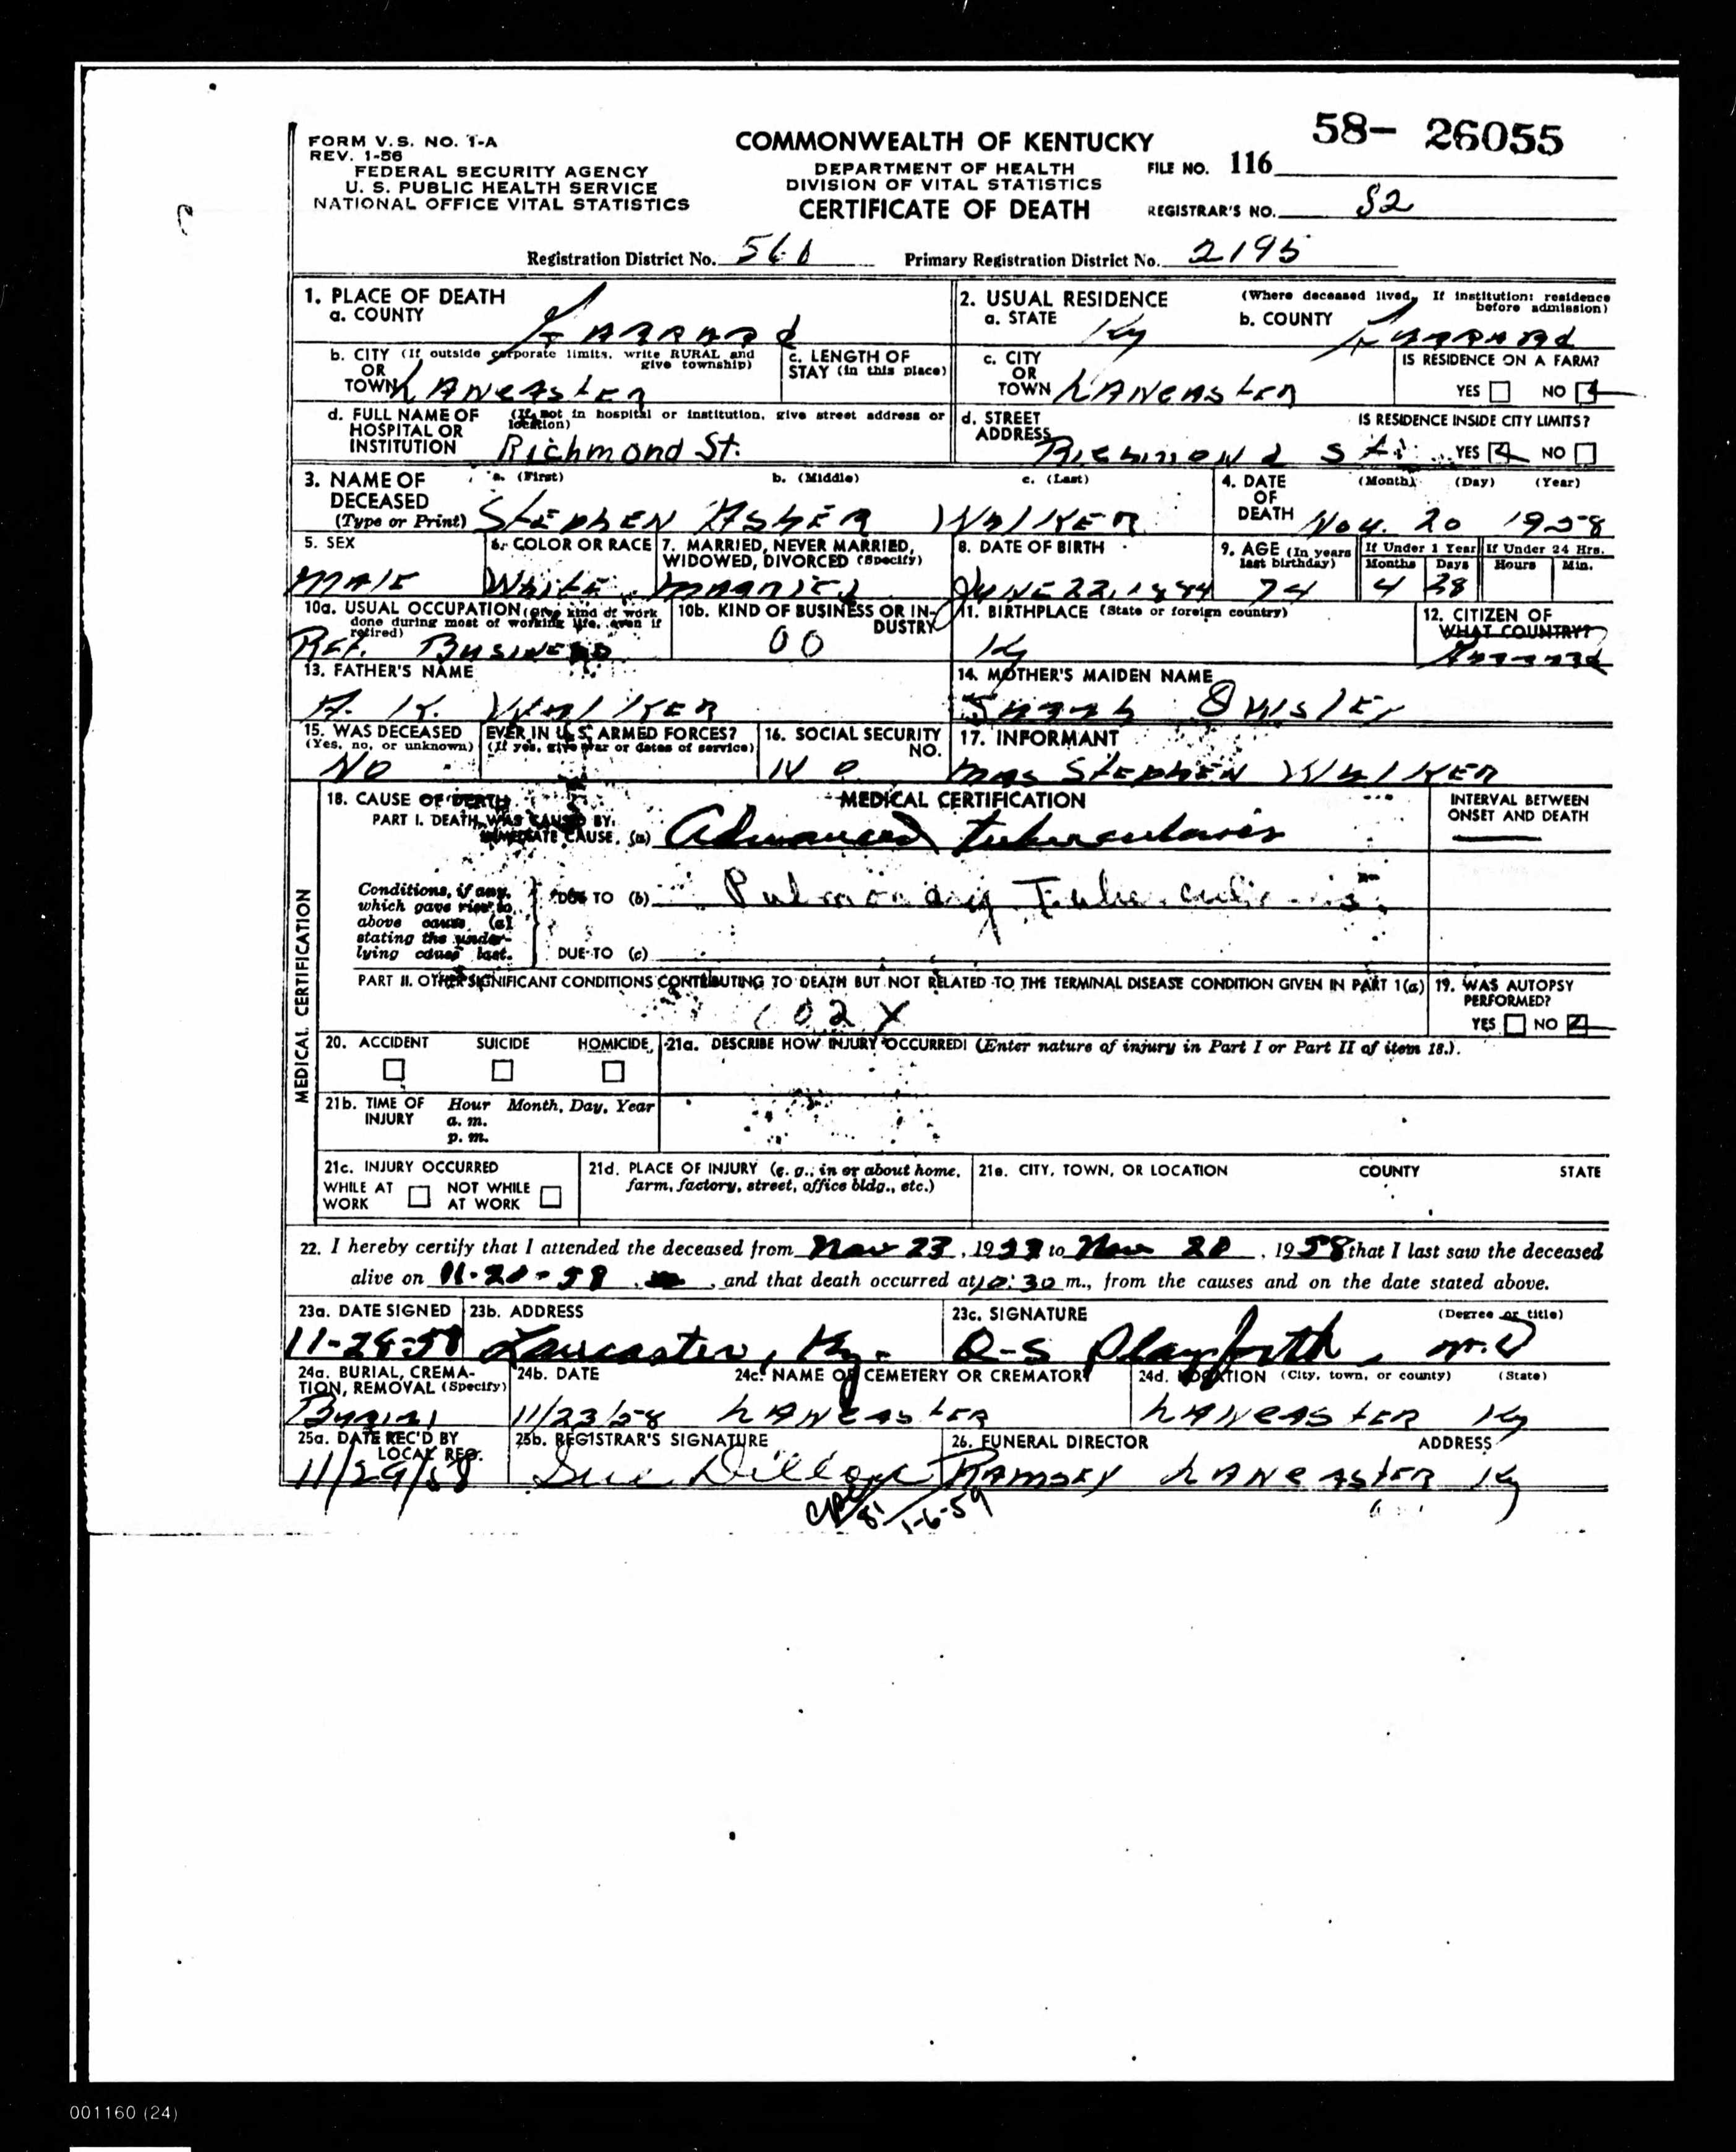 58- 26055
FORM V. S. NO. 1-A
REV. 1-56
FEDERAL SECURITY AGENCY
U. S. PUBLIC HEALTH SERVICE
NATIONAL OFFICE VITAL STATISTICS
COMMONWEALTH OF KENTUCKY
DEPARTMENT OF HEALTH
DIVISION OF VITAL STATISTICS
CERTIFICATE OF DEATH
FILE NO. 116
REGISTRAR'S NO. 82
Registration District No. Primary Registration District No. 2195
1. PLACE OF DEATH
a. COUNTY
Garrard
2. USUAL RESIDENCE (Where deceased lived, If institution: residence before admission)
a. STATE Ky b. COUNTY Garrard
b. CITY (If outside corporate limits, write RURAL and give township)
OR
TOWN LANCASTER
c. LENGTH OF STAY (in this place)
c. CITY
OR
TOWN LANCASTER
IS RESIDENCE ON A FARM?
YES NO
d. FULL NAME OF HOSPITAL OR INSTITUTION (If not in hospital or institution, give street address or location)
Richmond St.
d. STREET ADDRESS
Richmond St.
IS RESIDENCE INSIDE CITY LIMITS?
YES NO
3. NAME OF DECEASED (Type or Print)
a. (First) b. (Middle) c. (Last)
STEPHEN ASHER WALKER
4. DATE OF DEATH (Month) (Day) (Year)
Nov. 20 1958
5. SEX
MALE
6. COLOR OR RACE
White
7. MARRIED, NEVER MARRIED, WIDOWED, DIVORCED (Specify)
MARRIED
8. DATE OF BIRTH
JUNE 22, 1884
9. AGE (In years last birthday)
74
If Under 1 Year If Under 24 Hrs.
Months Days Hours Min.
4 28
10a. USUAL OCCUPATION (Give kind of work done during most of working life, even if retired)
RET. BUSINESS
10b. KIND OF BUSINESS OR INDUSTRY
00
11. BIRTHPLACE (State or foreign country)
Ky
12. CITIZEN OF WHAT COUNTRY?
Garrard
13. FATHER'S NAME
A. K. WALKER
14. MOTHER'S MAIDEN NAME
Sarah
15. WAS DECEASED EVER IN U. S. ARMED FORCES?
(Yes, no, or unknown) (If yes, give war or dates of service)
NO
16. SOCIAL SECURITY NO.
NO
17. INFORMANT
MRS STEPHEN WALKER
MEDICAL CERTIFICATION
18. CAUSE OF DEATH
MEDICAL CERTIFICATION
INTERVAL BETWEEN ONSET AND DEATH
PART I. DEATH WAS CAUSED BY:
IMMEDIATE CAUSE, (a) Advanced tuberculosis
Conditions, if any, which gave rise to above cause (a) stating the underlying cause last.
DUE TO (b) Pulmonary Tuberculosis
DUE TO (c)
PART II. OTHER SIGNIFICANT CONDITIONS CONTRIBUTING TO DEATH BUT NOT RELATED TO THE TERMINAL DISEASE CONDITION GIVEN IN PART 1(a)
02 X
19. WAS AUTOPSY PERFORMED?
YES NO
20. ACCIDENT SUICIDE HOMICIDE
21a. DESCRIBE HOW INJURY OCCURRED! (Enter nature of injury in Part I or Part II of item 18.).
21b. TIME OF INJURY Hour Month, Day, Year
a. m.
p. m.
21c. INJURY OCCURRED
WHILE AT WORK NOT WHILE AT WORK
21d. PLACE OF INJURY (e. g., in or about home, farm, factory, street, office bldg., etc.)
21e. CITY, TOWN, OR LOCATION COUNTY STATE
22. I hereby certify that I attended the deceased from Nov 23, 19 to Nov 20, 1958 that I last saw the deceased
alive on 11-20-58, and that death occurred at 10:30 m., from the causes and on the date stated above.
23a. DATE SIGNED
23b. ADDRESS
Lancaster, Ky.
23c. SIGNATURE (Degree or title)
Playforth, M.D
24a. BURIAL, CREMATION, REMOVAL (Specify)
Burial
24b. DATE
11/23/58
24c. NAME OF CEMETERY OR CREMATORY
LANCASTER
24d. LOCATION (City, town, or county) (State)
LANCASTER Ky
25a. DATE REC'D BY LOCAL REG.
11/29/58
25b. REGISTRAR'S SIGNATURE
Sue Dillon
26. FUNERAL DIRECTOR ADDRESS
RAMSEY LANCASTER Ky
1-6-59
001160 (24)